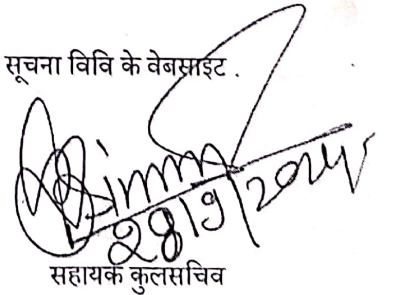 सूचना विवि के वेबसाइट .
28/9/2024
सहायक कुलसचिव